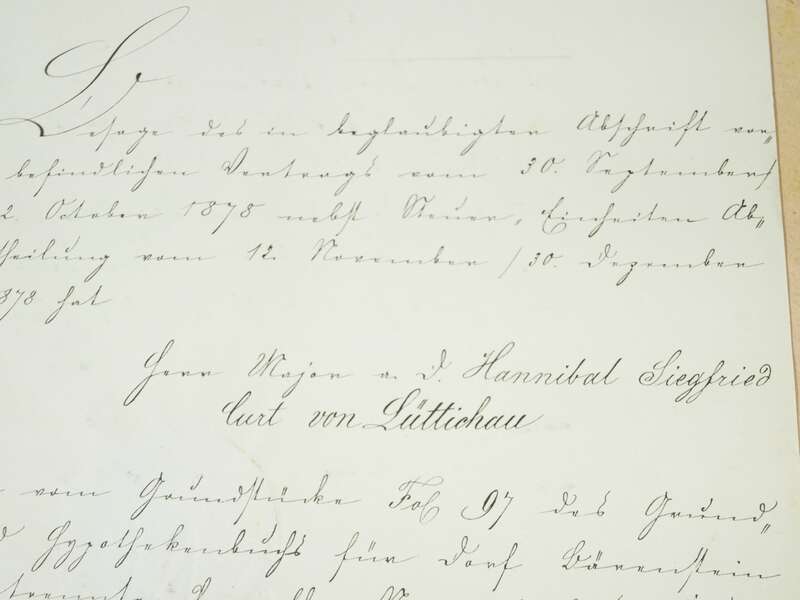 Besage des in beglaubigter Abschrift vor-
befindlichen Vertrags vom 30. September/
2. October 1878 nebst Steuer-Einheiten Ab-
theilung vom 12. November/30. Dezember
1878 hat
Herr Major a. D. Hannibal Siegfried
Curt von Lüttichau
vom Grundstücke Fol 97 des Grund-
Hypothekenbuchs für Dorf Bärenstein